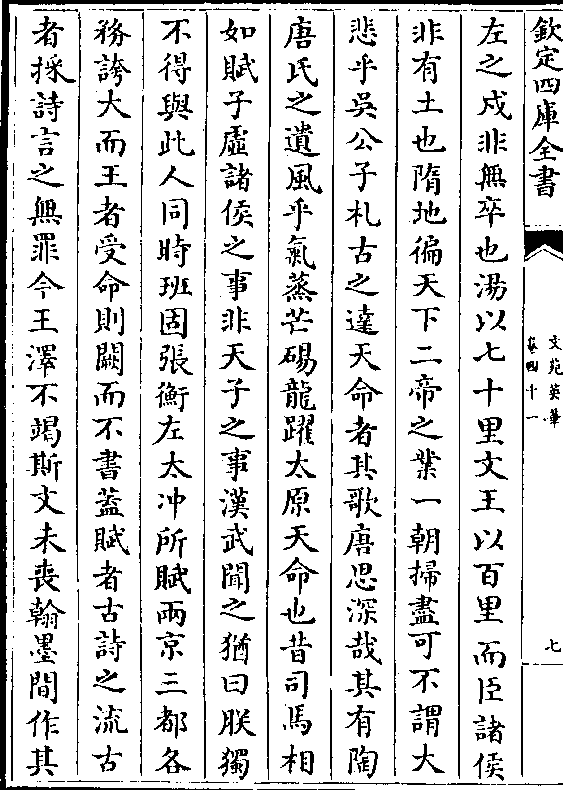 欽定四庫全書
文苑英華
卷四十一
七
左之戍非無卒也湯以七十里文王以百里而臣諸侯
非有土也隋地徧天下二帝之業一朝掃盡可不謂大
悲乎吳公子札古之達天命者其歌唐思深哉其有陶
唐氏之遺風乎氣蒸芒碭龍躍太原天命也昔司馬相
如賦子虛諸侯之事非天子之事漢武聞之猶曰朕獨
不得與此人同時班固張衡左太冲所賦兩京三都各
務誇大而王者受命則闕而不書蓋賦者古詩之流古
者採詩言之無罪今王澤不竭斯文未喪翰墨間作其